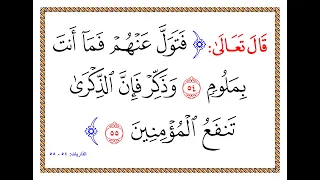 قَالَ تَعَالَىٰ: ﴿ فَتَوَلَّ عَنْهُمْ فَمَآ أَنتَ
بِمَلُومٍ ٥٤ وَذَكِّرْ فَإِنَّ ٱلذِّكْرَىٰ
تَنفَعُ ٱلْمُؤْمِنِينَ ٥٥ ﴾
الذاريات: ٥٤ - ٥٥